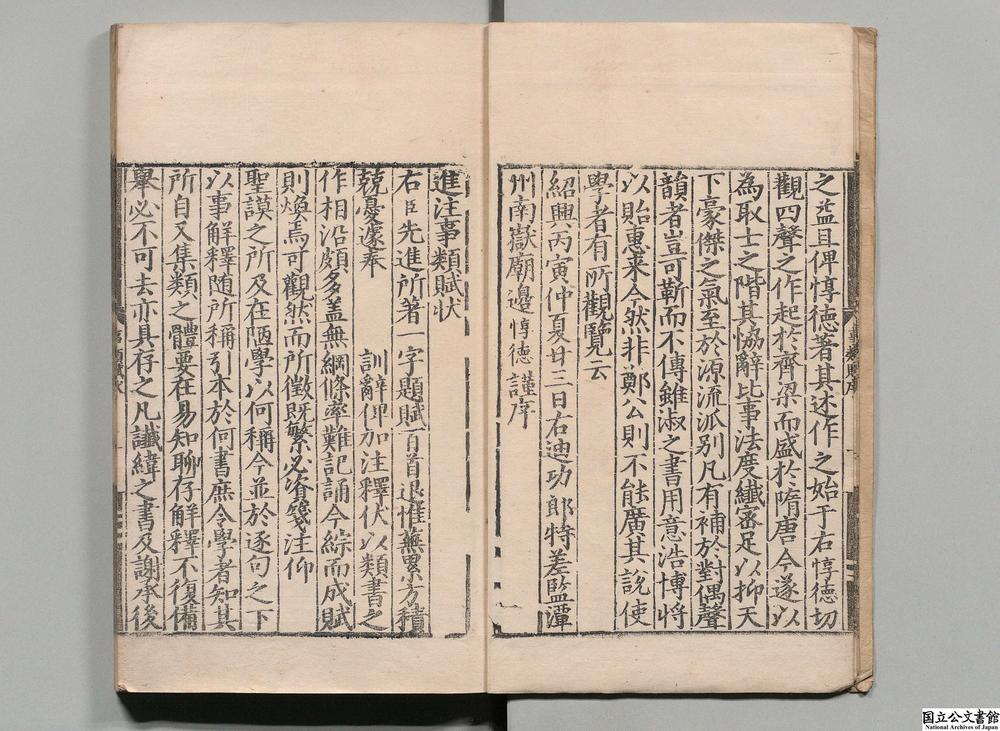 之益且俾惇德著其述作之始于右惇德切
觀四聲之作起於齊梁而盛於隋唐今遂以
為取士之階其協辭比事法度纎密足以抑天
下豪傑之氣至於源流派别凡有補於對偶聲
韻者豈可靳而不傳雖淑之書用意浩博將
以貽惠來今然非鄭公則不能廣其說使
學者有所觀覽云
紹興丙寅仲夏廿三日右迪功郎特差監潭
州南嶽廟邊惇德謹序
進注事類賦狀
右臣先進所著一字題賦百首退惟蕪累方積
兢憂遽奉 訓辭俾加注釋伏以類書之
作相沿頗多盖無綱條率難記誦今綜而成賦
則煥焉可觀然而所徵既繁必資箋注仰
聖謨之所及在陋學以何稱今並於逐句之下
以事解釋随所稱引本於何書庶令學者知其
所自又集類之體要在易知聊存解釋不復備
舉必不可去亦具存之凡讖緯之書及謝承後
国立公文書館
National Archives of Japan